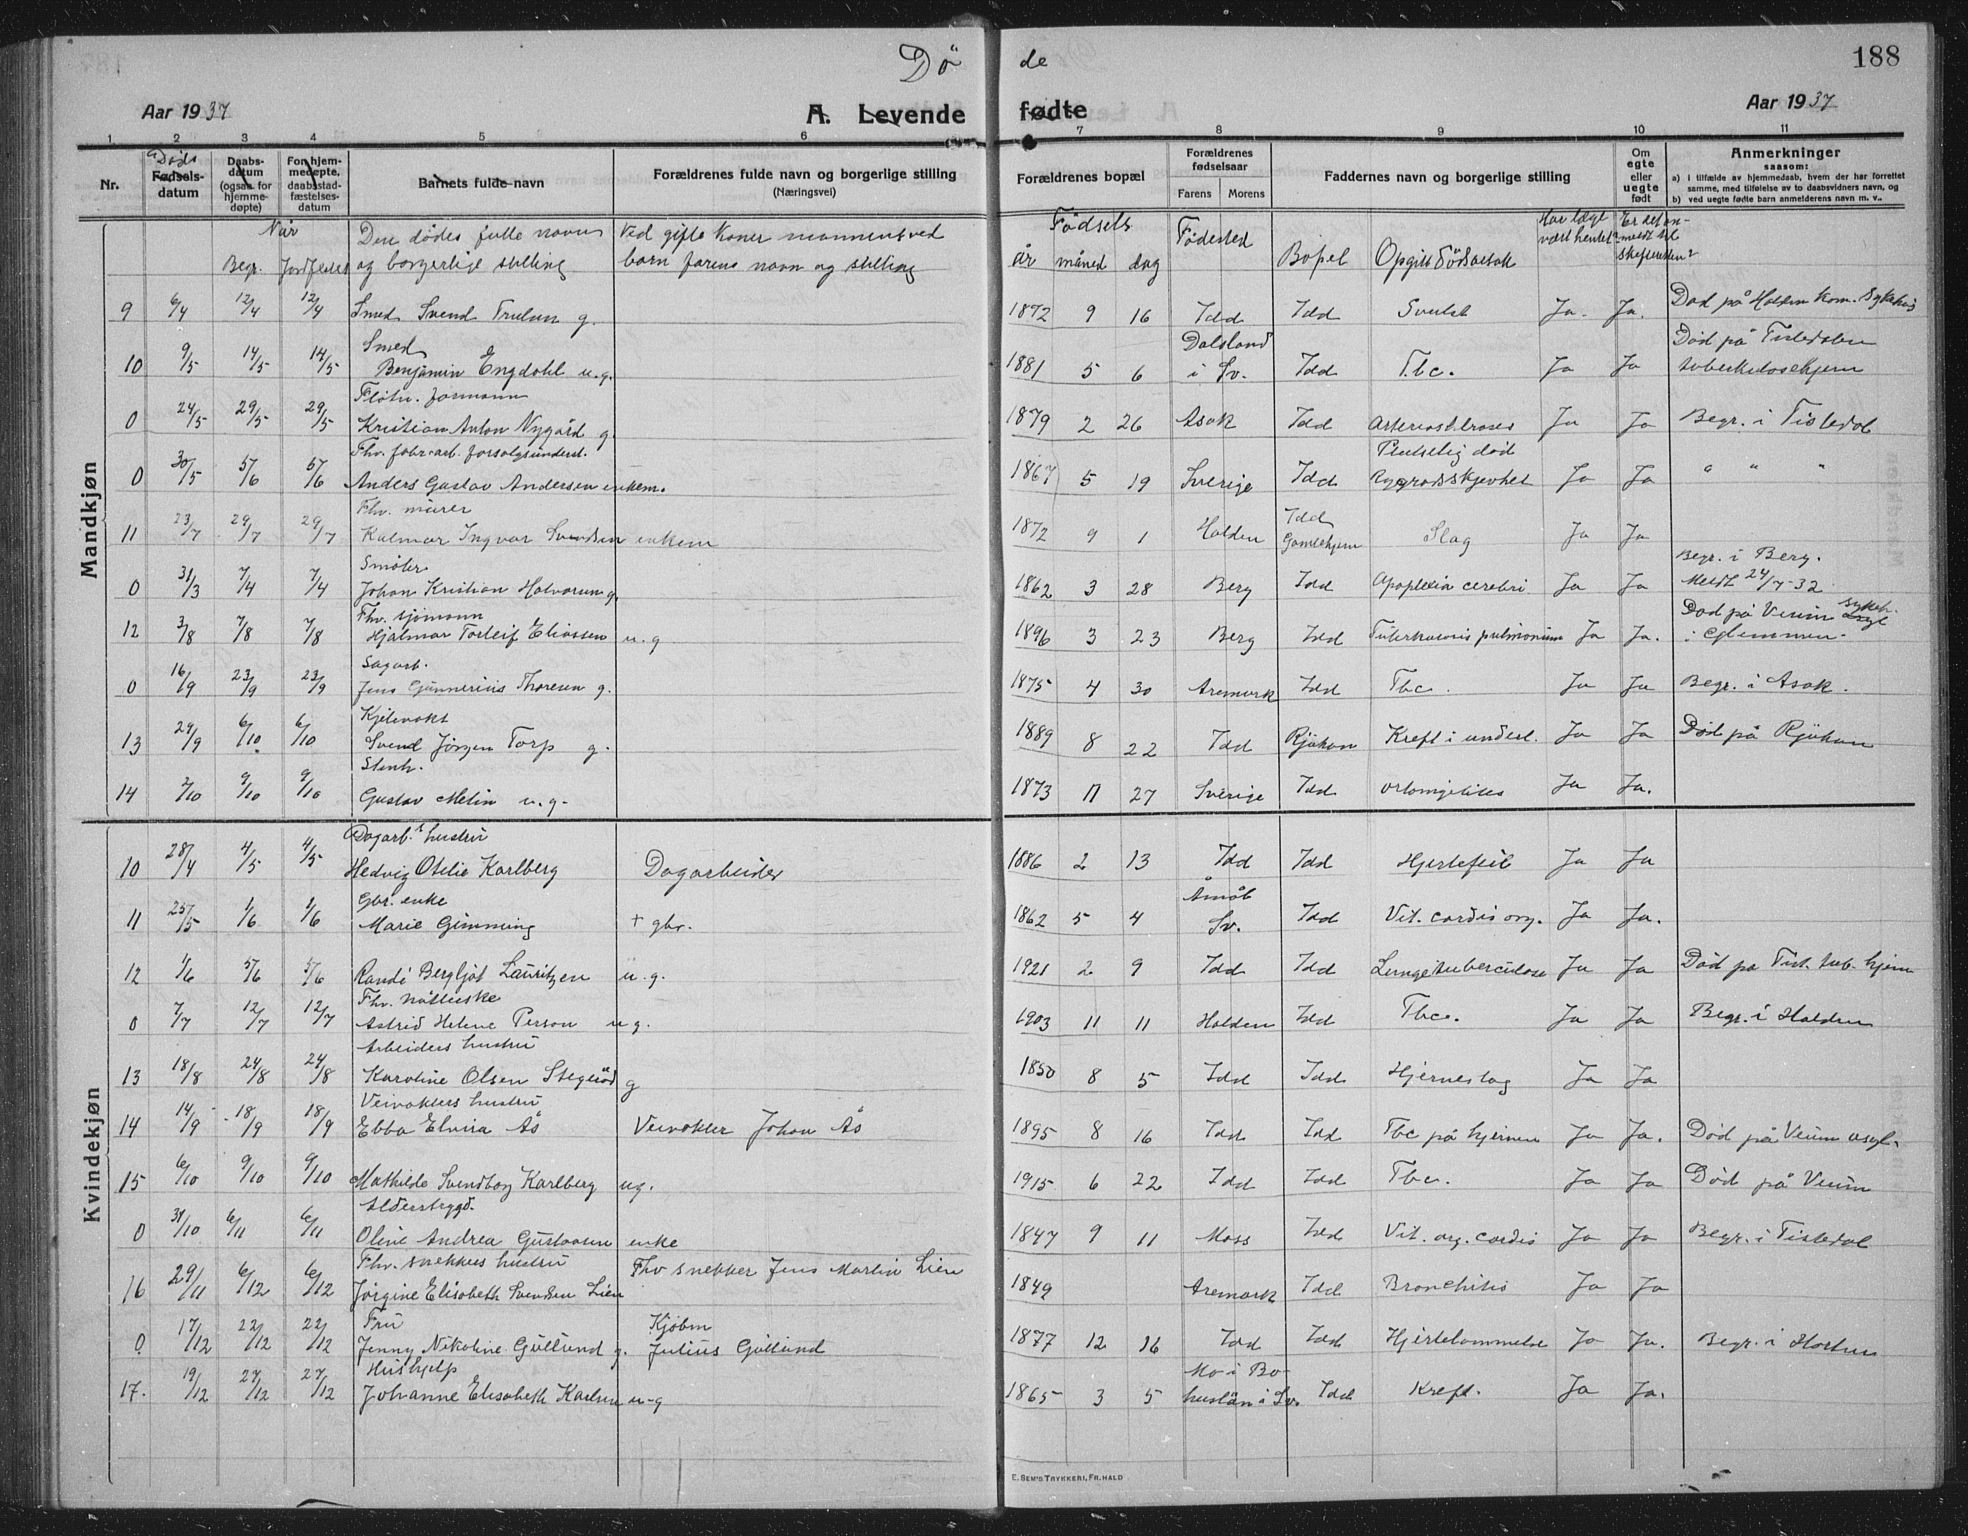 Dø de 188
Aar 1937 A. Levende fødte Aar 1937
1 2 3 4 5 6 7 8 9 10 11
Nr. Døds Fødsels-datum Daabs-datum (ogsaa for hjemme-døpte) For hjem-medøpte, daabsstad-fæstelses-datum Barnets fulde navn Forældrenes fulde navn og borgerlige stilling (Næringsvei) Forældrenes bopæl Forældrenes fødselsaar Farens Morens Faddernes navn og borgerlig stilling Om egte eller uegte født Anmerkninger saasom:
a) i tilfælde av hjemmedaab, hvem der har forrettet samme, med tilføielse av to daabsvidners navn, og
b) ved uegte fødte barn anmelderens navn m. v.
Når Begr. Jordfestet Den dødes fulle navn og borgerlige stilling Ved gifte koner mannens ved barn farens navn og stilling Fødsels år måned dag Fødested Bopel Opgitt dødsårsak Har læge vært hentet? Er det anmeldt til skifteretten?
Mandkjøn
9 6/4 12/4 12/4 Smed Svend Trulsen g. 1872 9 16 Idd Idd Svulst Ja. Ja. Død på Halden kom. sykehus
10 9/5 14/5 14/5 Smed Benjamin Engdahl u.g. 1881 5 6 Dalsland i Sv. Idd Tbc. Ja Ja Død på Tistedalen tuberkulosehjem
0 24/5 29/5 29/5 Fløtn. formann Kristian Anton Nygård g. 1879 2 26 Asak Idd Ja Ja Begr. i Tistedal
0 30/5 5/6 5/6 Fhv. fabr-arb. forsorgsunderst. Anders Gustav Andersen enkem. 1867 5 19 Sverige Idd Plutselig død Ryggradsskjevhet Ja Ja " " "
11 23/7 29/7 29/7 Fhv. murer Kalmar Ingvar Svendsen enkem 1872 9 1 Halden Idd Gamlehjem Slag Ja Ja
0 31/3 7/4 7/4 Småbr. Johan Kristian Halvorsen g. 1862 3 28 Berg Idd Apoplexia cerebri Ja Ja Begr. i Berg. Meldt 24/7-32
12 3/8 7/8 7/8 Fhv. sjømann Hjalmar Torleif Eliassen u.g 1896 3 23 Berg Idd Tuberkulosis pulmonum Ja Ja. Død på Veum sykeh. Asyl i Glemmen.
0 16/9 23/9 23/9 Sagarb. Jens Gunnerius Thoresen g. 1875 4 30 Aremark Idd Tbc. Ja Ja Begr. i Asak.
13 29/9 6/10 6/10 Svend Jörgen Torp g. 1889 8 22 Idd Rjukan Kreft i underl. Ja Ja Død på Rjukan
14 2/10 9/10 9/10 Stenh. Gustav Melin u.g. 1873 11 27 Sverige Idd Ja Ja.
Kvindekjøn
10 28/4 4/5 4/5 Dagarb.s hustru Hedvig Otelie Karlberg Dagarbeider 1886 2 13 Idd Idd Hjertefeil Ja Ja
11 25/5 1/6 1/6 Gbr. enke Marie Gimming + gbr. 1862 5 4 Åmål Sv. Idd Vit. cordis org. Ja Ja.
12 1/6 5/6 5/6 Randi Bergljot Lauritzen u.g. 1921 2 9 Idd Idd Lungetuberculose Ja Ja Død på Tist. tub. hjem
0 7/7 12/7 12/7 Fhv. Astrid Helene Person u g. 1903 11 11 Halden Idd Tbc. Ja Ja Begr. i Halden
13 18/8 24/8 24/8 Arbeiders hustru Karoline Olsen Stegerød g 1850 8 5 Idd Idd Hjerneslag Ja Ja
14 14/9 18/9 18/9 Veivokters hustru Ebba Elvira Ås Veivokter Johan Ås 1895 8 16 Idd Idd Tbc på hjernen Ja Ja. Død på Veum asyl.
15 6/10 9/10 9/10 Mathilde Svendborg Karlberg ug. 1915 6 22 Idd Idd Tbc. Ja Ja Død på Veum
0 31/10 6/11 6/11 Alderstrygd. Oline Andrea Gustavsen enke 1847 9 11 Moss Idd Vit. org. cordis Ja Ja Begr. i Tistedal
16 29/11 6/12 6/12 Fhv. snekkers hustru Jørgine Elisabeth Svendsen Lien Fhv snekker Jens Martin Lien 1849 Aremark Idd Bronchitis Ja Ja
0 17/12 22/12 22/12 Fru Jenny Nikoline Gullund g. Kjøbm Julius Gullund 1877 12 16 Idd Idd Hjertelammelse Ja Ja. Begr. i Horten
17. 19/12 27/12 27/12 Hushjelp Johanne Elisabeth Karlsen u-g 1865 3 5 Mo i Bohuslän i Sv. Idd Kreft. Ja Ja.
E. SEM'S TRYKKERI, FR.HALD